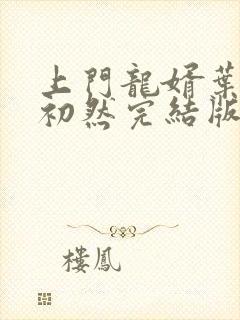 上門龍婿葉
初然完結版
樓鳳